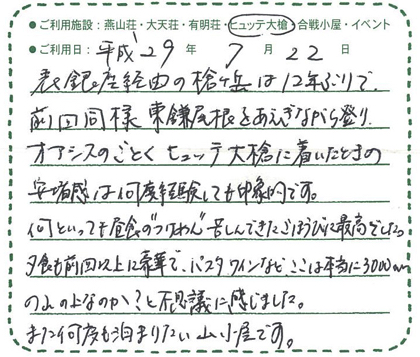 ●ご利用施設：燕山荘・大天荘・有明荘・ヒュッテ大槍・合戦小屋・イベント
●ご利用日：平成29年7月22日
表銀座経由の槍ヶ岳は12年ぶりで、
前回同様東鎌尾根をあえぎながら登り、
オアシスのごとくヒュッテ大槍に着いたときの
安堵感は何度経験しても印象的です。
何といっても昼食の"つけめん"苦しんできたごほうびに最高でした。
夕食も前回以上に豪華で、パスタ、ワインなど、ここは本当に3000m
の山の上なのか？と不思議に感じました。
また何度も泊まりたい山小屋です。